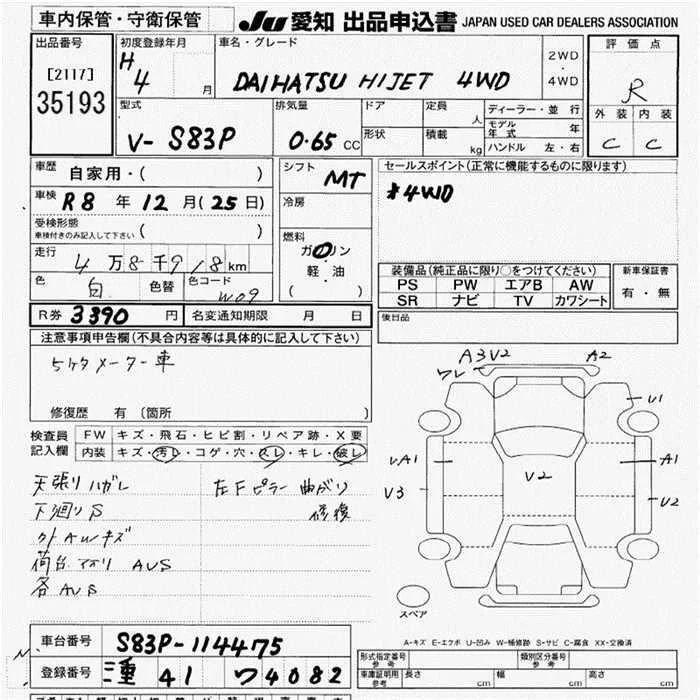 車内保管・守衛保管
JU 愛知 出品申込書 JAPAN USED CAR DEALERS ASSOCIATION
出品番号
[2117]
35193
初度登録年月
H
4 月
車名・グレード
DAIHATSU HIJET 4WD
2WD
・
4WD
評価点
R
外装 内装
C C
型式
V- S83P
排気量
0.65 CC
ドア
形状
定員
人
積載
kg
ディーラー・並行
モデル年式 年
ハンドル 左・右
車歴
自家用・( )
車検 R8 年 12 月(25日)
受検形態
車検付きのみ記入して下さい ( )
走行 4万8千918km
色 白 色替 色コード W09
シフト
MT
冷房
燃料
ガソリン
軽・油
( )
セールスポイント(正常に機能するものに限ります)
#4WD
装備品(純正品に限り○をつけてください)
PS PW エアB AW
SR ナビ TV カワシート
新車保証書
有・無
R券 3390 円 名変通知期限 月 日
後日品
注意事項申告欄(不具合内容等は具体的に記入して下さい)
5ケタメーター車
修復歴 有 〔箇所 〕
検査員
記入欄
FW キズ・飛石・ヒビ割・リペア跡・X要
内装 キズ・汚レ・コゲ・穴・スレ・キレ・破レ
天張りハガレ
左Fピラー曲がり
修復
下廻りS
外AWキズ
荷台アオリ AUS
各AUS
A3V2
ワレ
A2
U1
A1
V3
V2
A1
V2
スペア
A-キズ E-エクボ U-凹み W-補修跡 S-サビ C-腐食 XX-交換済
車台番号 S83P-114475
登録番号 三重 41 ワ4082
形式指定番号
参考
類別区分番号
参考
車庫証明用
参考
長さ cm 幅 cm 高さ cm